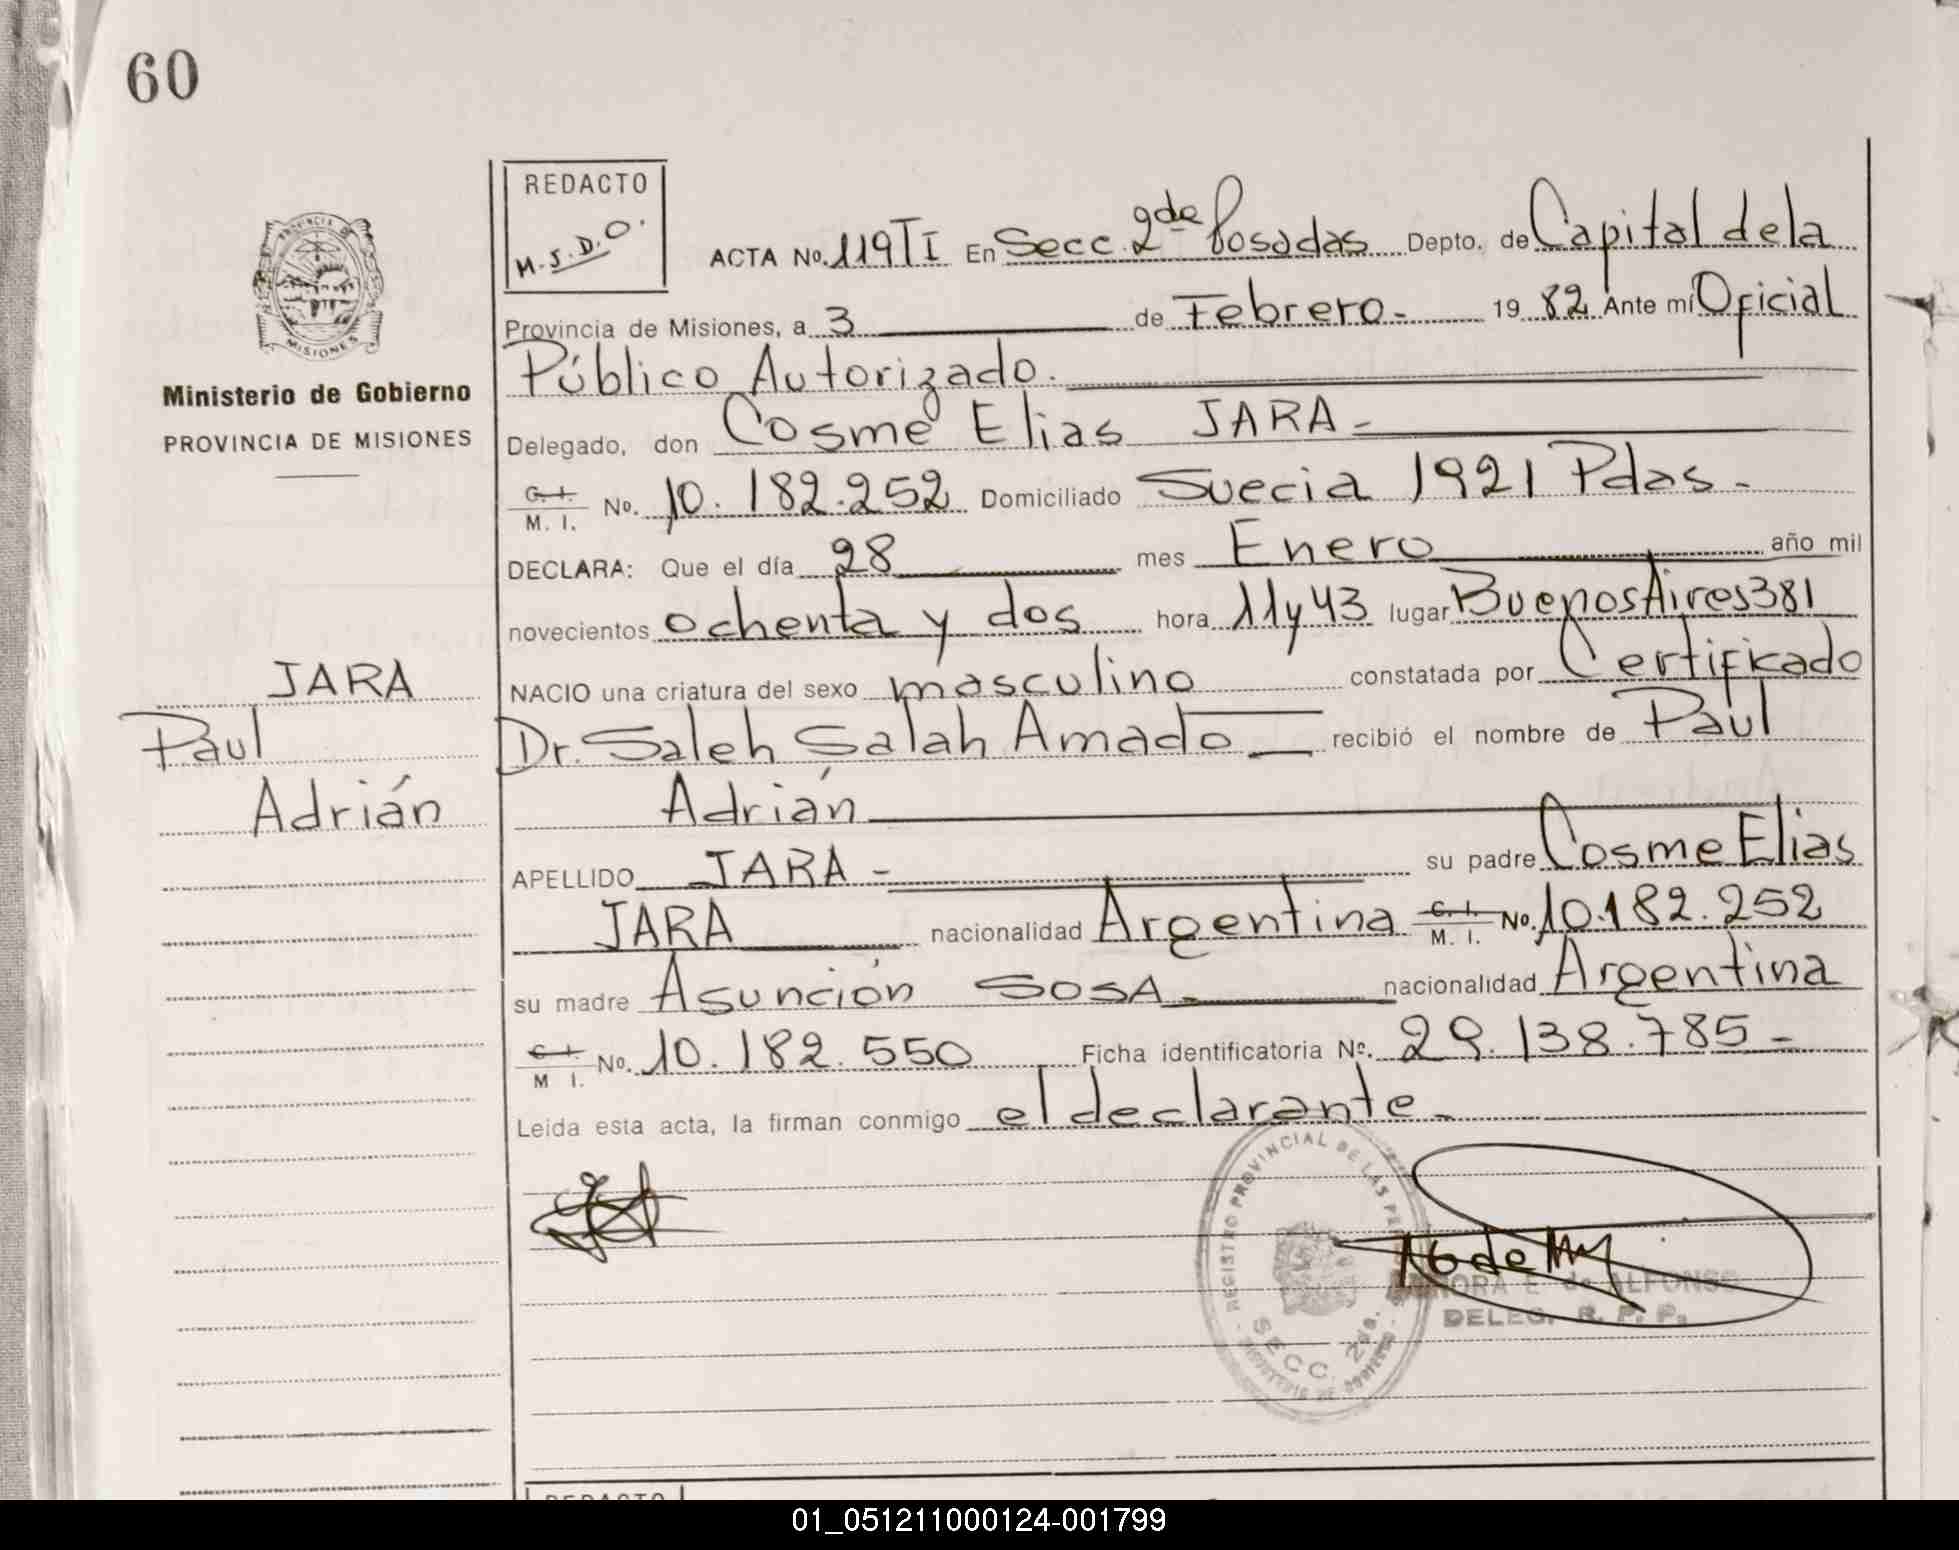 60
REDACTO
M.S.D.O.
PROVINCIA DE
MISIONES
Ministerio de Gobierno
PROVINCIA DE MISIONES
ACTA No. 119 TI En Secc. 2da Posadas Depto. de Capital de la
Provincia de Misiones, a 3 de Febrero.- 19 82 Ante mí Oficial
Público Autorizado.
Delegado, don Cosme Elias JARA-
C. I. M. I. No. 10.182.252 Domiciliado Suecia 1921 Pdas.-
DECLARA: Que el día 28 mes Enero año mil
novecientos ochenta y dos hora 11 y 43 lugar Buenos Aires 381
JARA
NACIO una criatura del sexo masculino constatada por Certificado
Paul
Dr. Saleh Salah Amado recibió el nombre de Paul
Adrián
Adrián
APELLIDO JARA- su padre Cosme Elias
JARA nacionalidad Argentina C. I. M. I. No. 10.182.252
su madre Asunción SOSA- nacionalidad Argentina
C. I. M I. No. 10.182.550 Ficha identificatoria No. 29.138.785-
Leida esta acta, la firman conmigo el declarante-
REGISTRO PROVINCIAL DE LAS
SECC. 2da.
E de ALFONSO
DELEG. R. P. P.
REDACTO
01_051211000124-001799